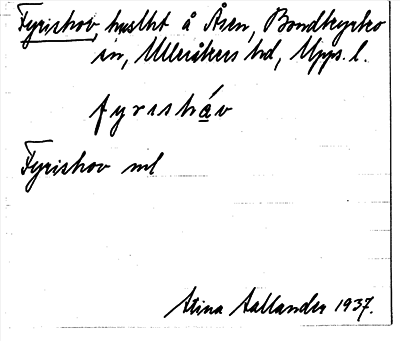 Fyrishov, huslht å Åsen, Bondkyrko
sn, Ulleråkers hd, Upps. l.
fyrishåv
Fyrishov ml
Stina Aallander 1937.